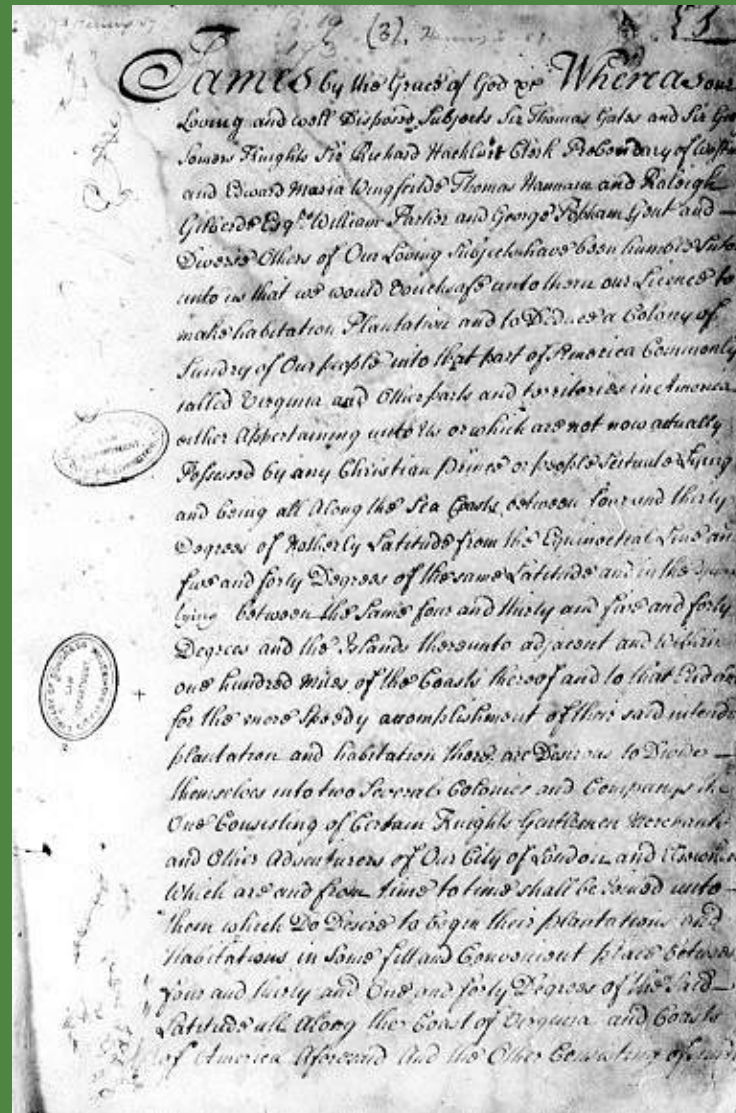 (3).
James by the Grace of God &c Whereas our
Loving and well Disposed Subjects Sir Thomas Gates and Sir Geo
Somers Knights Sir Richard Hackluit Clerk Prebendary of Westm
and Edward Maria Wingfeilde Thomas Hannam and Raleigh
Gilberde Esqrs. William Parker and George Popham Gent and
Diverse Others of Our Loving Subjects have been humble Suto
unto us that we would vouchsafe unto them our Licence to
make habitation Plantation and to Deduce a Colony of
Sundry of Our people into that part of America Commonly
called Virginia and Other parts and territories in America
either Appertaining unto Us or which are not now actually
Possessed by any Christian Prince or people Scituate Lying
and being all Along the Sea Coasts between four and thirty
Degrees of Northerly Latitude from the Equinoctial Line and
five and forty Degrees of the same Latitude and in the
lying between the Same four and thirty and five and forty
Degrees and the Islands thereunto adjacent and within
one hundred Miles of the Coasts thereof and to that End and
for the more Speedy accomplishment of their said intende
plantation and habitation there are Desirous to Divide
themselves into two Several Colonies and Companys the
One Consisting of Certain Knights Gentlemen Merchants
and Other Adventurers of Our City of London and
Which are and from time to time shall be Joined unto
them which Do Desire to begin their plantations and
Habitations in Some fitt and Convenient place between
four and thirty and One and forty Degrees of the Said
Latitude all Along the Coast of Virginia and Coasts
of America Aforesaid And the Other Consisting of
LIBRARY OF CONGRESS
LAW
DEPARTMENT